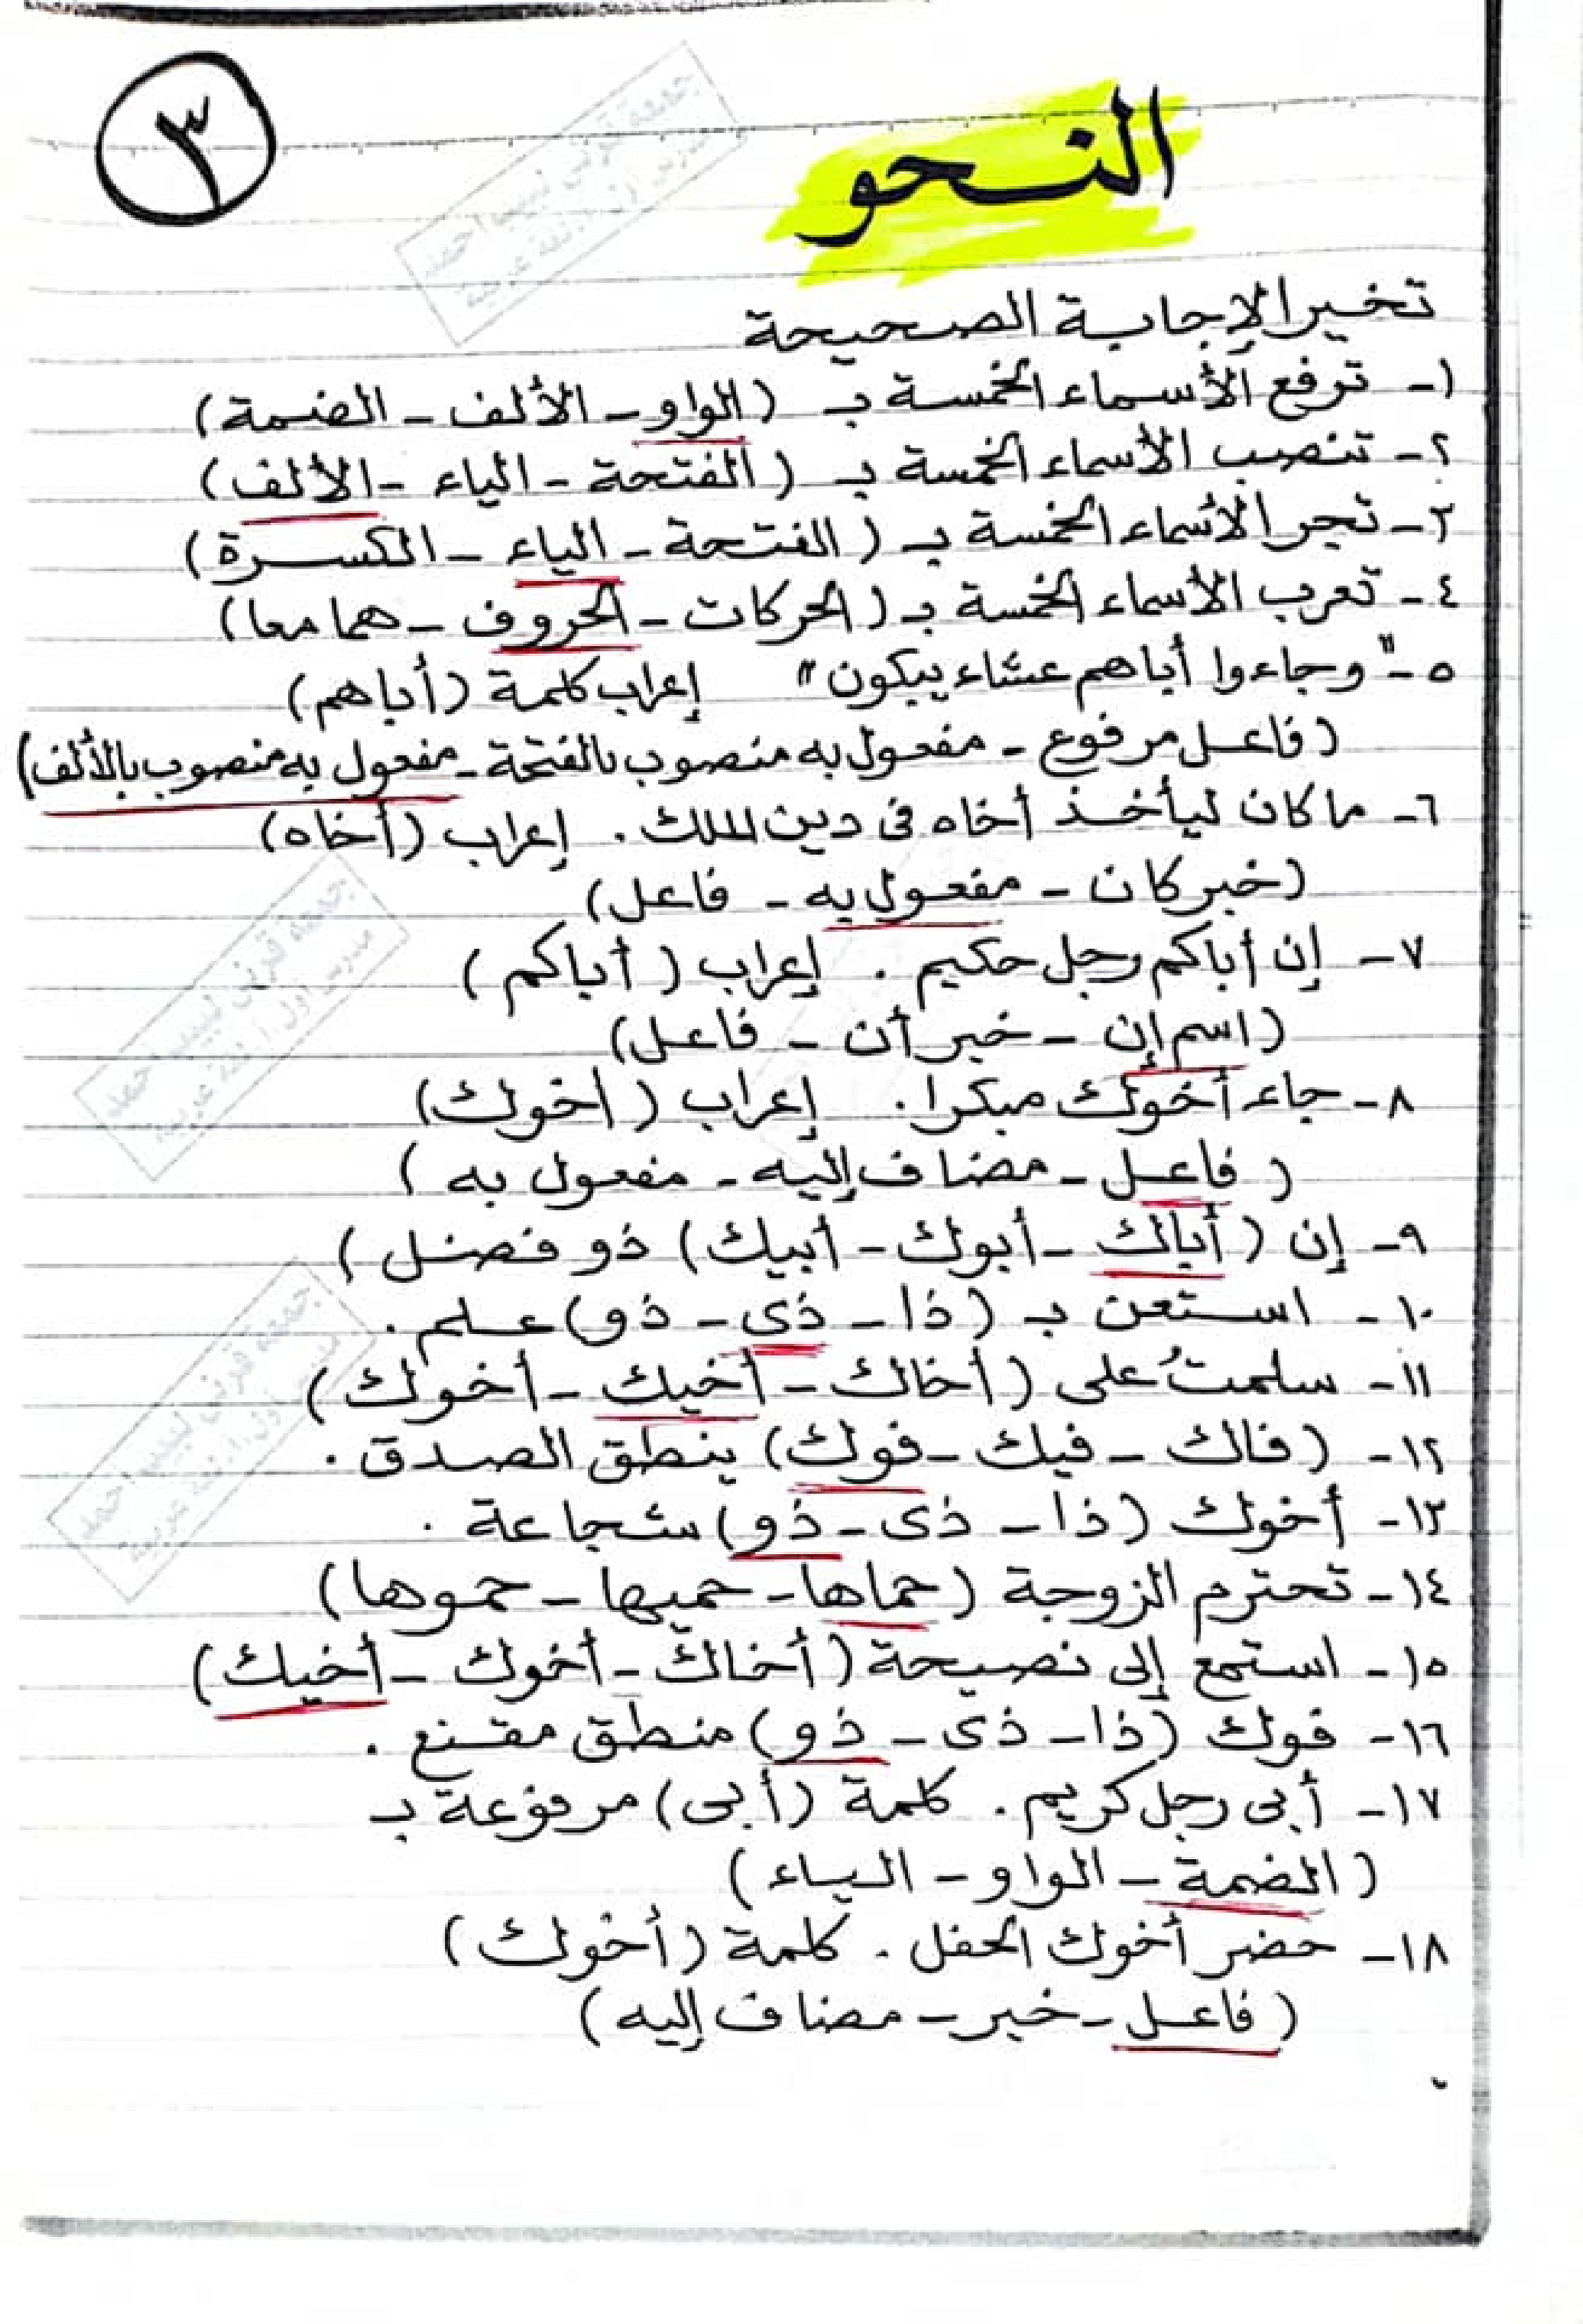 ٣
النحو
تخير الإجابة الصحيحة
١- ترفع الأسماء الخمسة بـ (الواو - الألف - الضمة)
٢- تنصب الأسماء الخمسة بـ (الفتحة - الياء - الألف)
٣- تجر الأسماء الخمسة بـ (الفتحة - الياء - الكسرة)
٤- تعرب الأسماء الخمسة بـ (الحركات - الحروف - هما معا)
٥- "وجاءوا أباهم عشاء يبكون" إعراب كلمة (أباهم)
(فاعل مرفوع - مفعول به منصوب بالفتحة - مفعول به منصوب بالألف)
٦- ما كان ليأخذ أخاه فى دين الملك. إعراب (أخاه)
(خبر كان - مفعول به - فاعل)
٧- إن أباكم رجل حكيم. إعراب (أباكم)
(اسم إن - خبر أن - فاعل)
٨- جاء أخوك مبكرا. إعراب (أخوك)
(فاعل - مضاف إليه - مفعول به)
٩- إن (أباك - أبوك - أبيك) ذو فضل)
١٠- استعن بـ (ذا - ذى - ذو) علم.
١١- سلمتُ على (أخاك - أخيك - أخوك)
١٢- (فاك - فيك - فوك) ينطق الصدق.
١٣- أخوك (ذا - ذى - ذو) شجاعة.
١٤- تحترم الزوجة (حماها - حميها - حموها)
١٥- استمع إلى نصيحة (أخاك - أخوك - أخيك)
١٦- فوك (ذا - ذى - ذو) منطق مقنع.
١٧- أبى رجل كريم. كلمة (أبى) مرفوعة بـ
(الضمة - الواو - الياء)
١٨- حضر أخوك الحفل. كلمة (أخوك)
(فاعل - خبر - مضاف إليه)
جمعه قرنى لبيب احمد
جمعه قرنى لبيب احمد
مدرس اول ا. لغة عربية
جمعه قرنى لبيب احمد